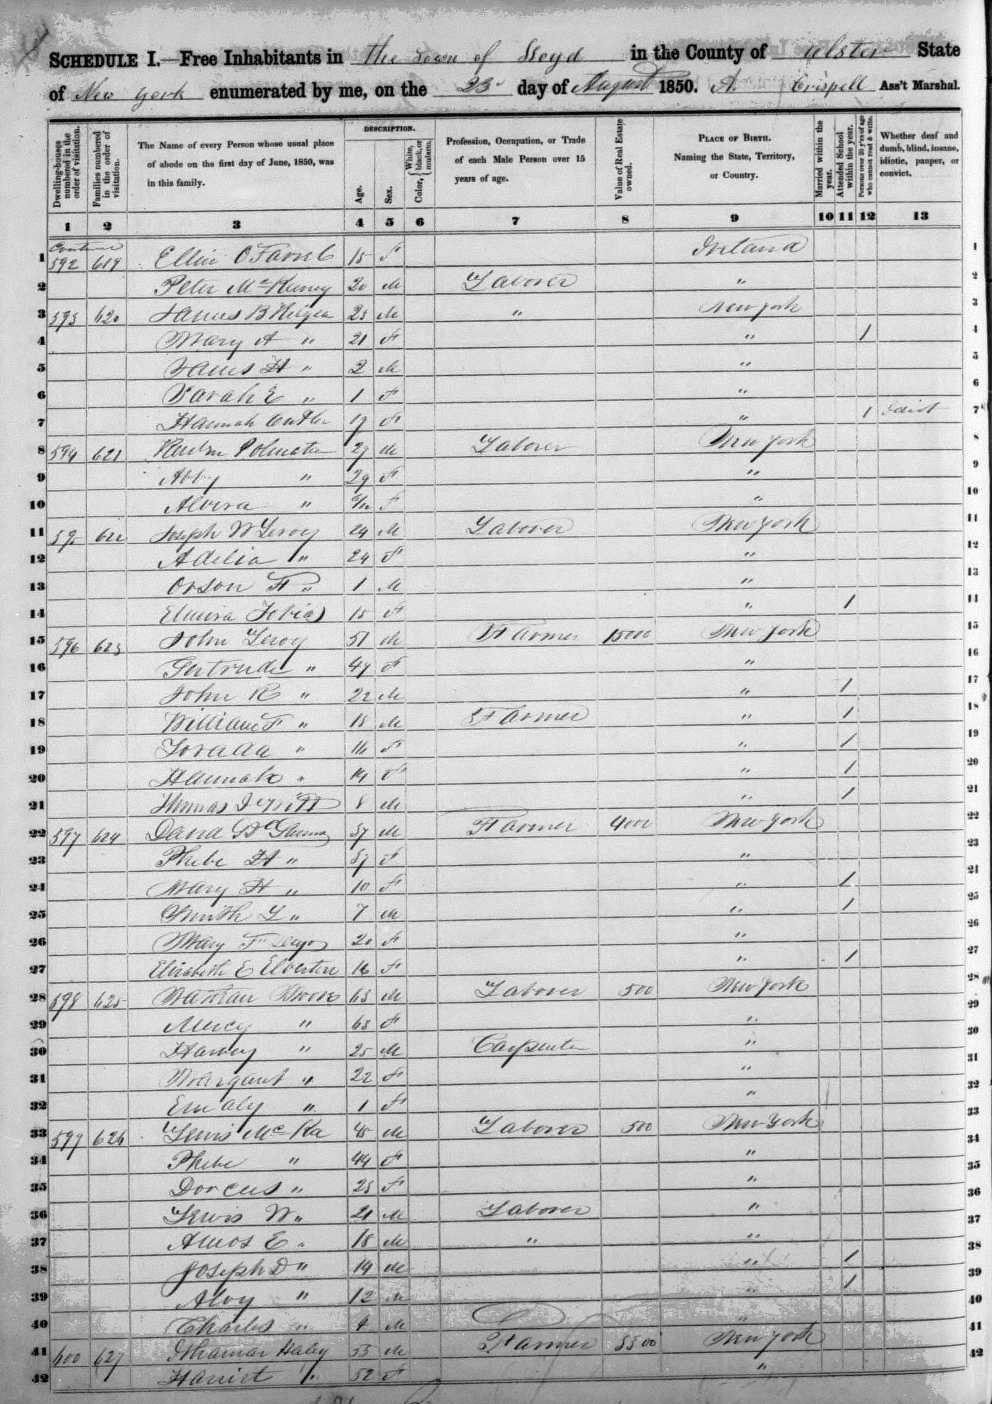 SCHEDULE I.—Free Inhabitants in the Town of Lloyd in the County of Ulster State
of New York enumerated by me, on the 23 day of August 1850. A. Crispell Ass't Marshal.
Dwelling-houses numbered in the order of visitation.
Families numbered in the order of visitation.
The Name of every Person whose usual place of abode on the first day of June, 1850, was in this family.
DESCRIPTION.
Age.
Sex.
Color, White, black, or mulatto.
Profession, Occupation, or Trade of each Male Person over 15 years of age.
Value of Real Estate owned.
PLACE OF BIRTH. Naming the State, Territory, or Country.
Married within the year.
Attended School within the year.
Persons over 20 y'rs of age who cannot read & write.
Whether deaf and dumb, blind, insane, idiotic, pauper, or convict.
1 2 3 4 5 6 7 8 9 10 11 12 13
1 592 619 Ellin F Ireland 1
2 Peter McKinney 20 M Laborer " 2
3 593 620 James B 23 M " New York 3
4 Mary A " 21 F " 1 4
5 James H " 2 M " 5
6 Sarah E " 1 F " 6
7 Hannah 17 F " 1 Idiot 7
8 594 621 27 M Laborer New York 8
9 Abby " 29 F " 9
10 Alvira " F " 10
11 59 622 Joseph W Leroy 24 M Laborer New York 11
12 Adelia " 24 F " 12
13 Orson H " 1 M " 13
14 Elmira Tobias 15 F " 1 14
15 596 623 John Leroy 51 M Farmer 15000 New York 15
16 Gertrude " 47 F " 16
17 John R " 22 M " 1 17
18 William F " 18 M Farmer " 1 18
19 " 16 F " 1 19
20 Hannah " 14 F " 1 20
21 Thomas DeWitt 8 M " 1 21
22 597 624 57 M Farmer 4000 New York 22
23 Phebe H " 57 F " 23
24 Mary H " 10 F " 1 24
25 Smith L " 7 M " 1 25
26 Mary F 20 F " 26
27 Elizabeth E Elverton 16 F " 1 27
28 598 625 63 M Laborer 500 New York 28
29 Mercy " 63 F " 29
30 Harvey " 25 M Carpenter " 30
31 Margaret " 22 F " 31
32 Emaly " 1 F " 32
33 599 626 Lewis McKa 45 M Laborer 500 New York 33
34 Phebe " 44 F " 34
35 Dorcus " 23 F " 35
36 Lewis W " 21 M Laborer " 36
37 Amos E " 18 M " " 37
38 Joseph D " 14 M " 1 38
39 Aloy " 12 M " 1 39
40 Charles " 4 M " 40
41 600 627 Ithamar Haley 53 M Farmer 3500 New York 41
42 Harriet " 52 F " 42